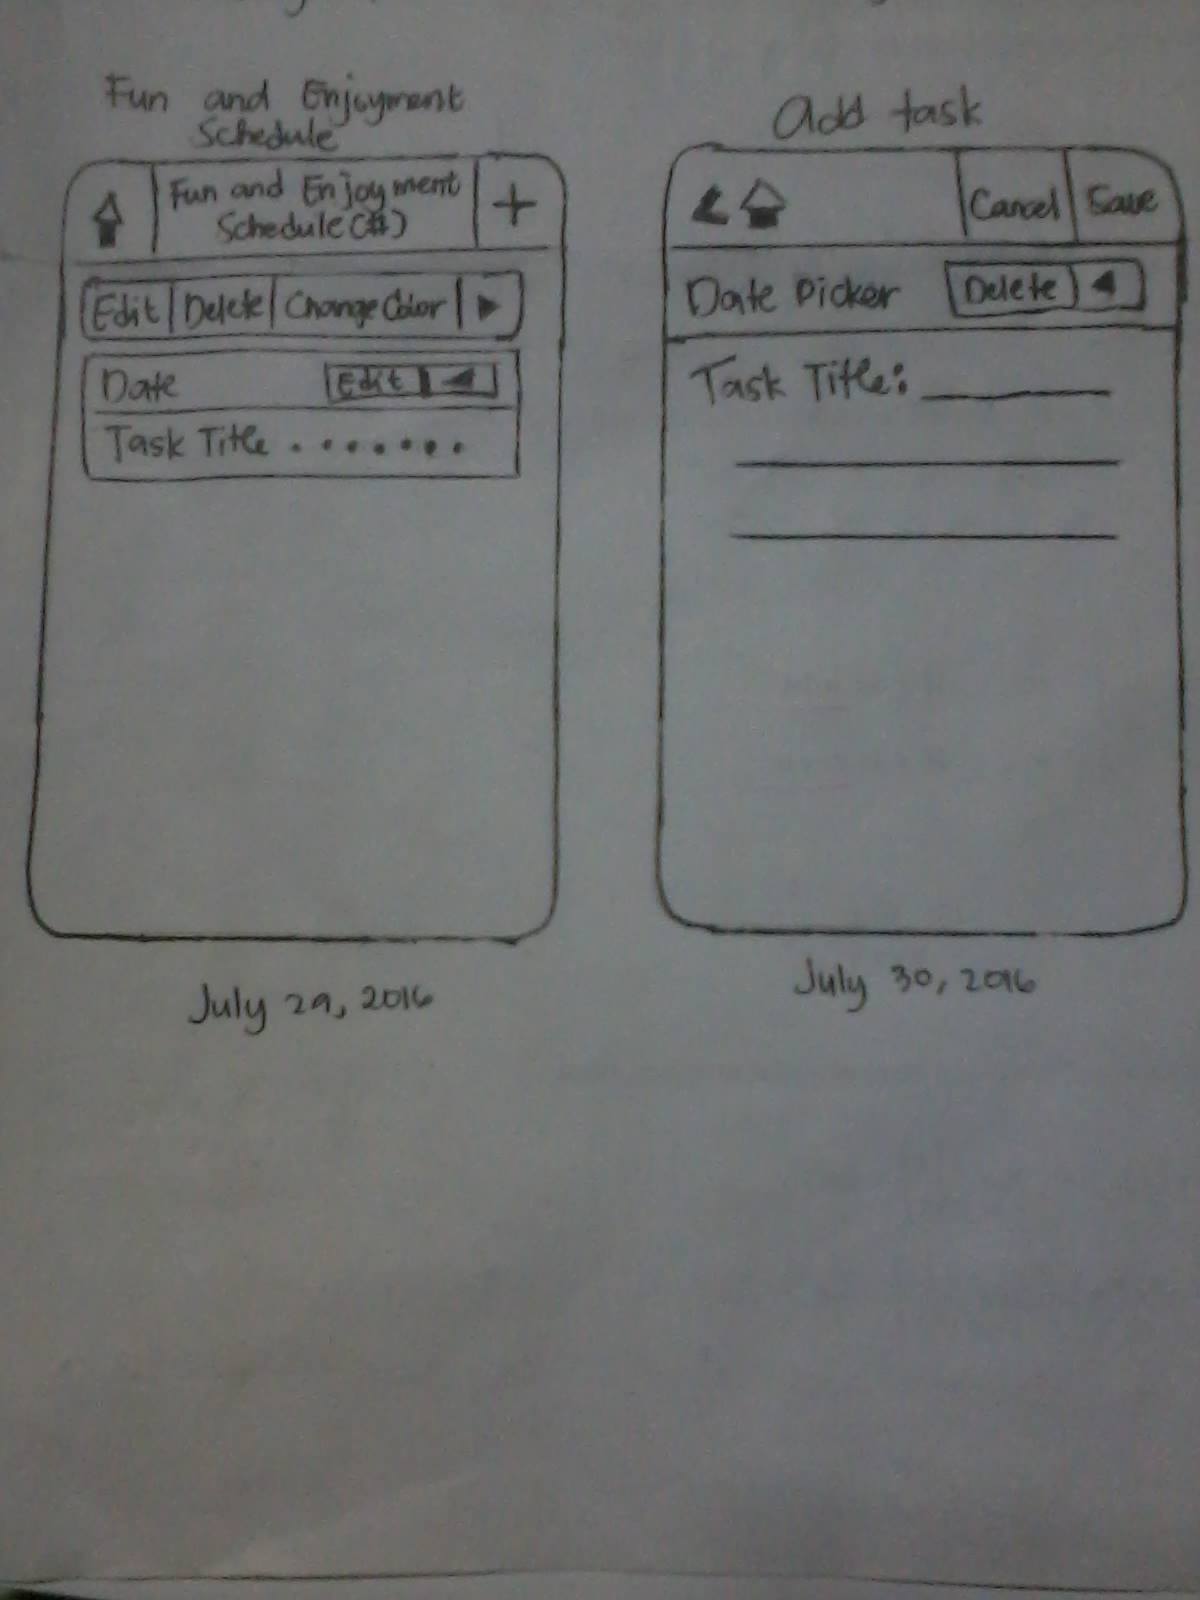 Fun and Enjoyment
Schedule
Fun and Enjoyment
Schedule(#)
+
Edit Delete Change Color
Date Edit
Task Title . . . . . . .
July 29, 2016
Add task
Cancel Save
Date Picker Delete
Task Title:
July 30, 2016